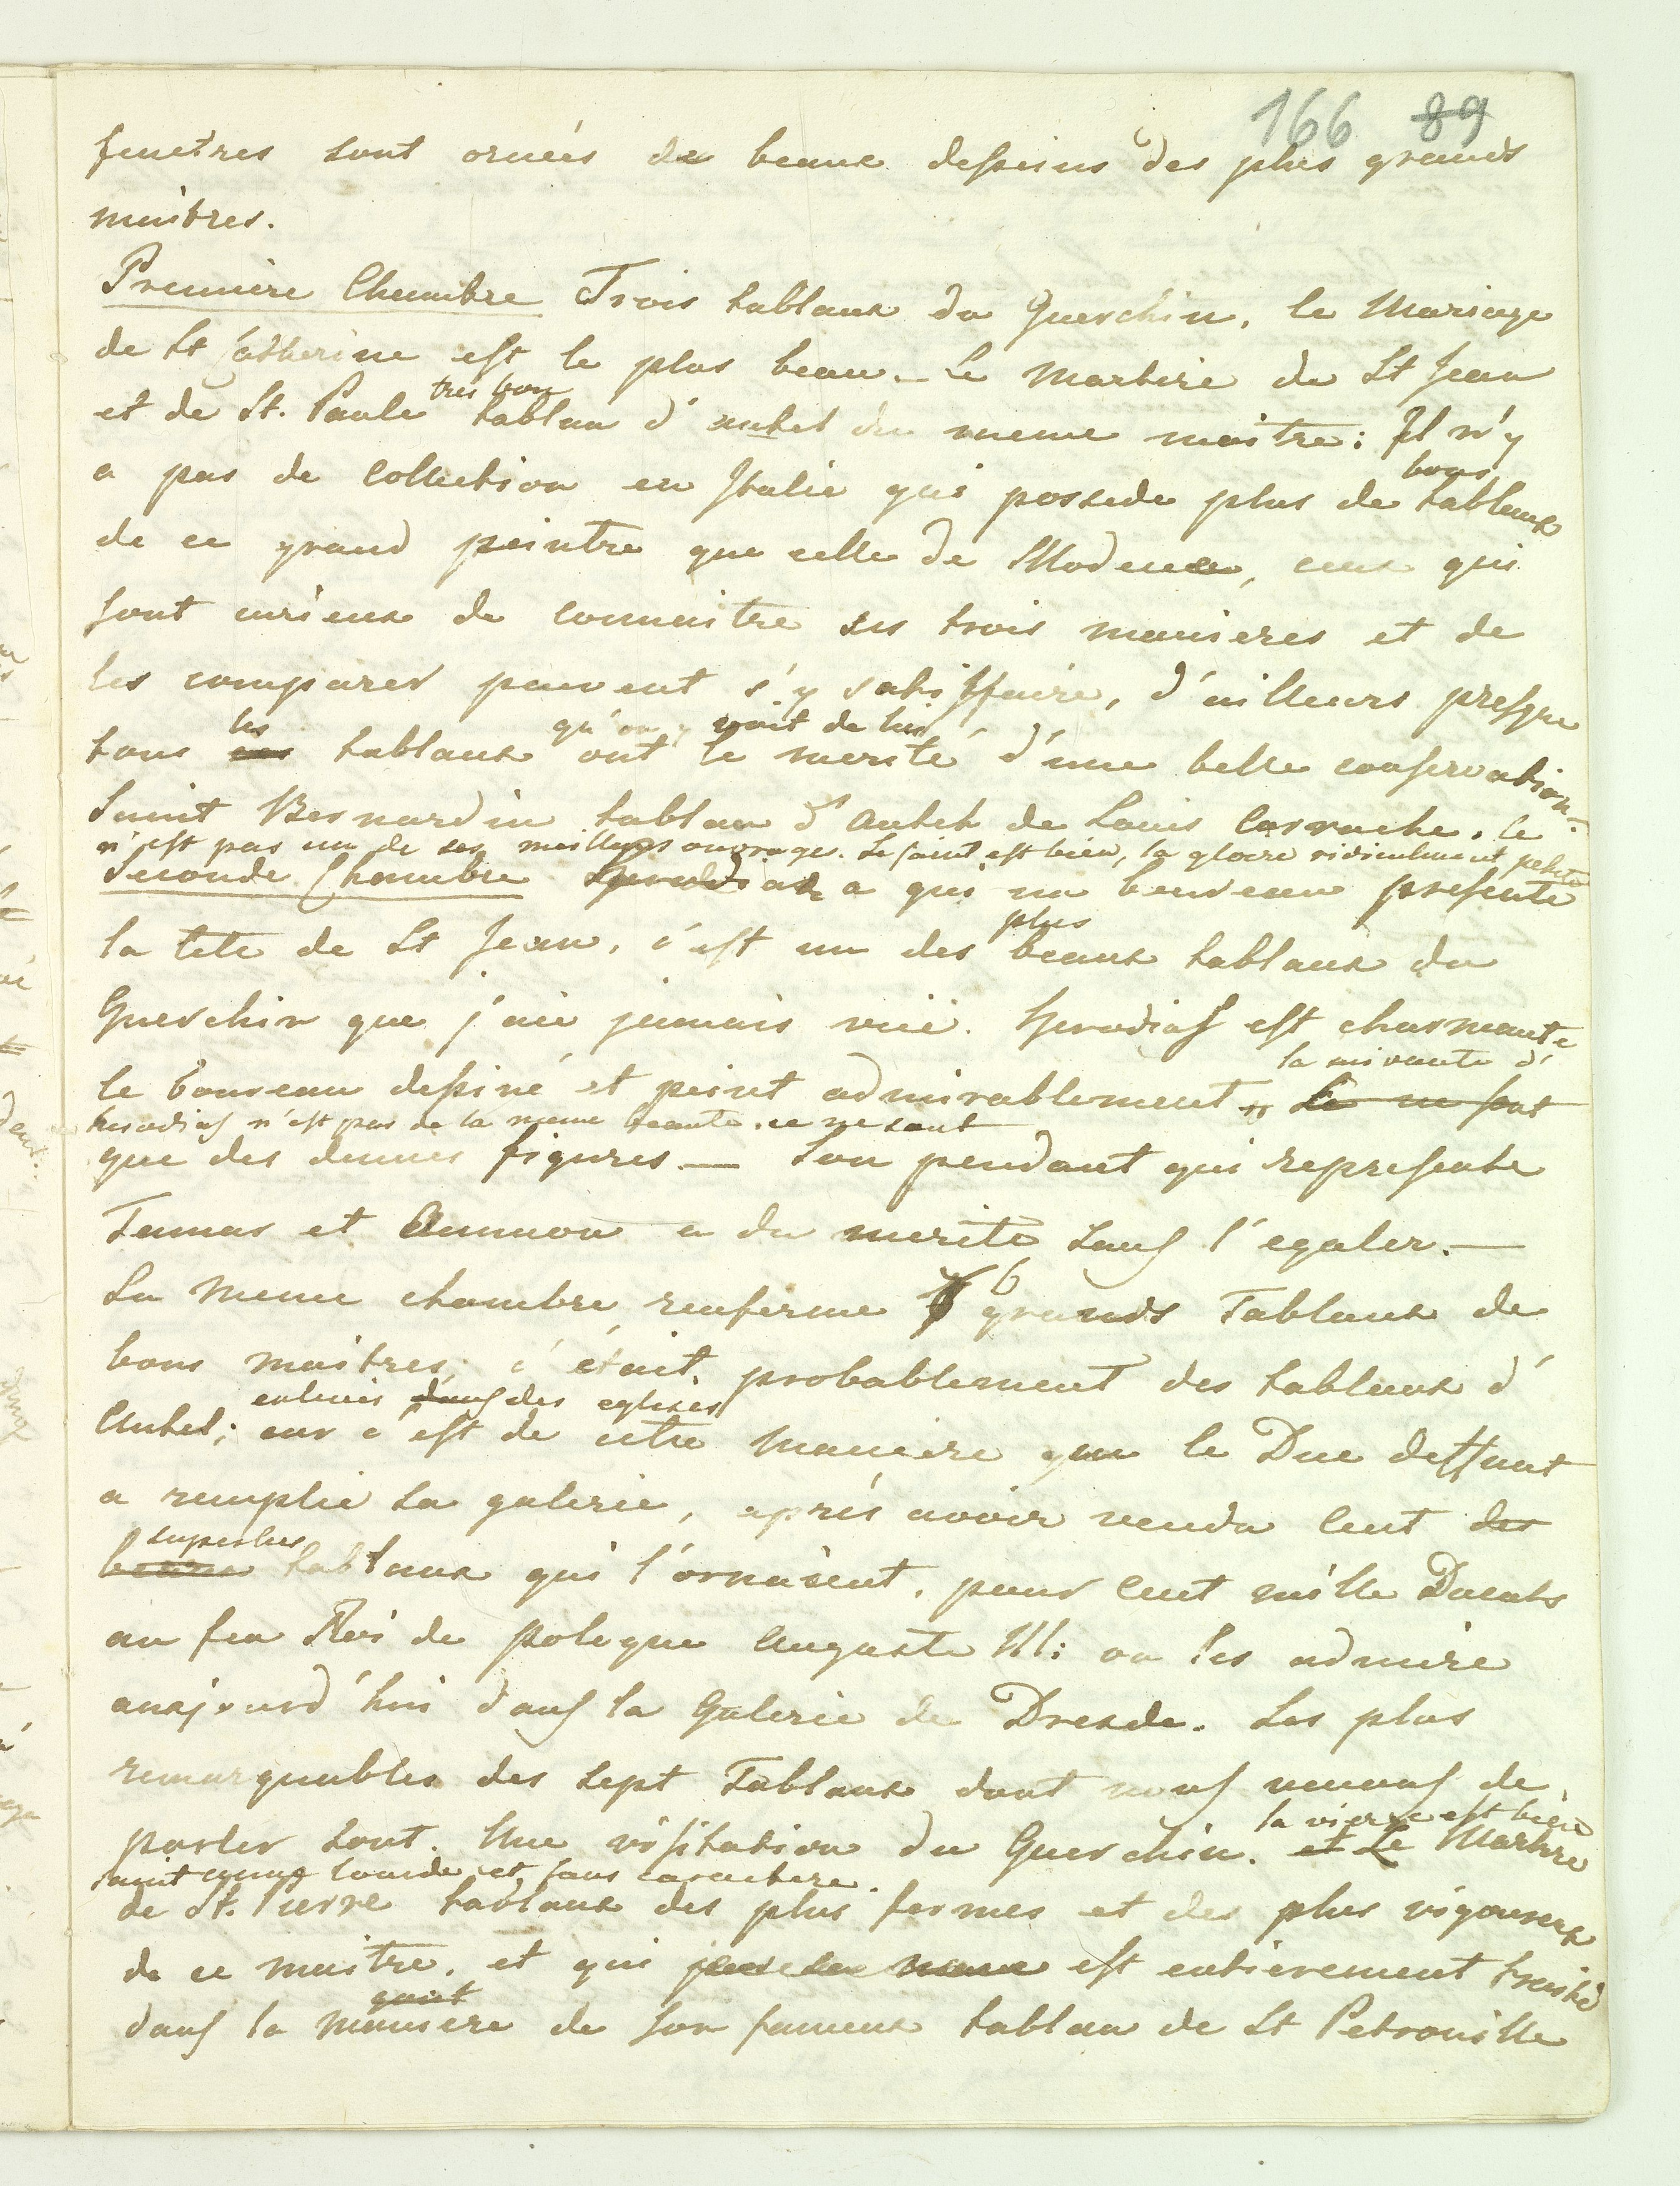 166 89
fenetres sont ornées de beaux desseins des plus grands
maitres.
Premiere Chambre Trois tablaux du Guerchin, le Mariage
de St Catherine est le plus beau. Le Martire de St Jean
tres bon
et de St. Paule tablau d'autel du meme maitre: Il n'y
bons
a pas de Collection en Italie qui possede plus de tablaux
de ce grand peintre que celle de Modene, ceux qui
sont curieux de connaitre ses trois manieres et de
les comparer peuvent s'y satisffaire, d'ailleurs presque
les qu'on y voit de lui
tous ces tablaux ont le merite d'une belle conservation.
Saint Bernardin tablau d'Autel de Louis Carrache. Ce
n'est pas un de ses meilleurs ouvrages. Le saint est bien, la gloire ridiculement petite
Seconde Chambre Herodias a qui un bourreau presente
plus
la tete de St Jean, c'est un des beaux tablaux du
Guerchin que j'aie jamais vuë. Herodias est charmante
la suivante d'
le boureau dessiné et peint admirablement, Ce ne sont
herodias n'est pas de la meme beauté. ce ne sont
que des demies figures — Son pendant qui represente
Tamar et Ammon a du merite sans l'egaler. —
6
La meme chambre renferme 7 grands Tablaux de
bons maitres, c'était probablement des tablaux d'
enlevés dans des eglises
Autel; car c'est de cette maniere que le Duc deffunt
a remplie sa galerie, aprés avoir vendu Cent des
superbes
beaux tablaux qui l'ornaient, pour Cent mille Ducats
au feu Roi de pologne Auguste III: on les admire
aujourd'hui dans la Galerie de Dresde. Les plus
remarquables des sept Tablaux dont nous venons de
la vierge est bien
parler sont. Une visitation du Guerchin. et Le Martire
lourde et sans caractere.
de St. Pierre tablaux des plus fermes et des plus vigoureux
de ce maitre, et qui est entierement traité
gout
dans la maniere de son fameux tablau de St Petronille